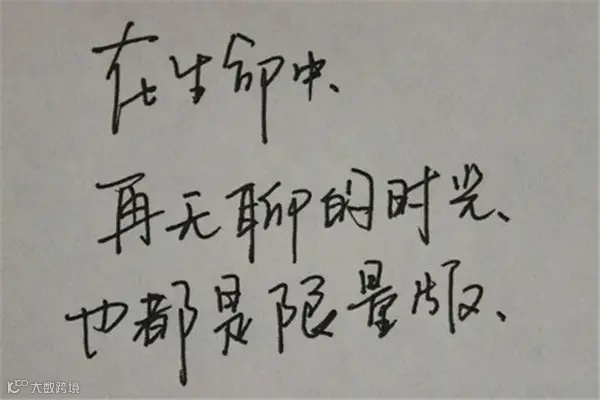 在生命中、
再无聊的时光、
也都是限量版、
大数跨境